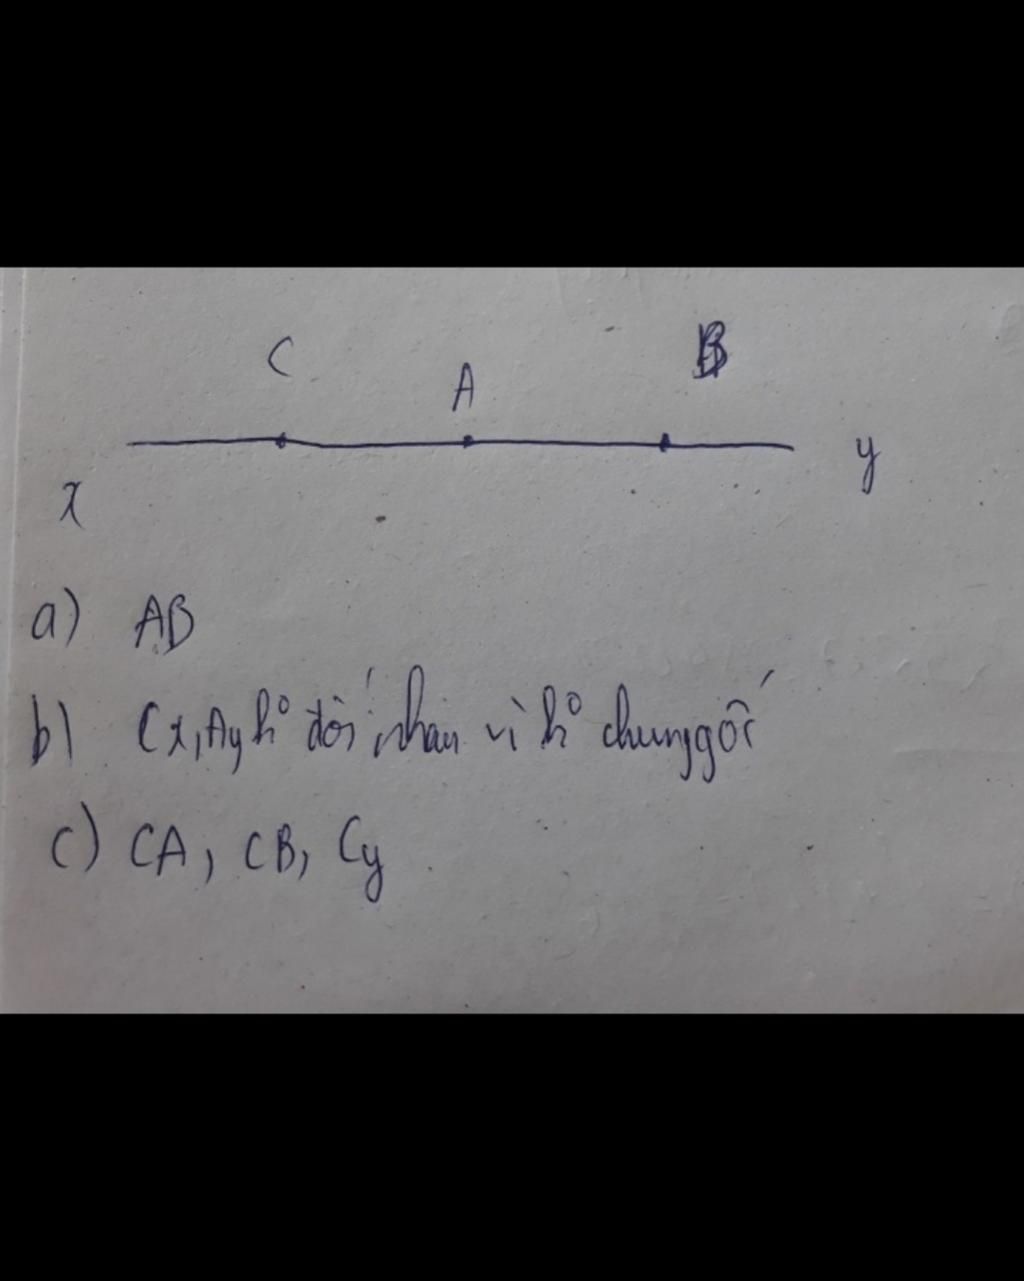 C A B
x y
a) AB
b) Cx, Ay k° đối nhau vì k° chung gốc
c) CA, CB, Cy